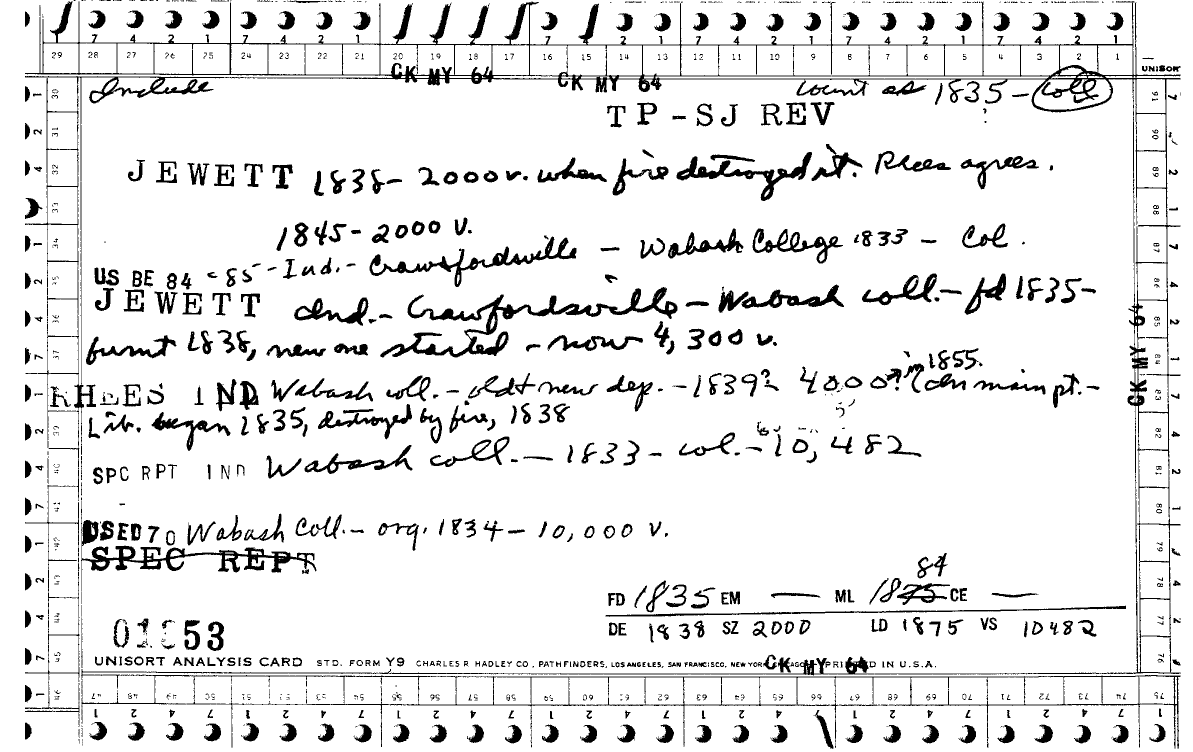 7 4 2 1 7 4 2 1 7 4 2 1 7 4 2 1 7 4 2 1 7 4 2 1 7 4 2 1
29 28 27 26 25 24 23 22 21 20 19 18 17 16 15 14 13 12 11 10 9 8 7 6 5 4 3 2 1
CK MY 64 CK MY 64 UNISORT
Include count as 1835 - coll
TP - SJ REV
JEWETT 1838 - 2000 v. when fire destroyed it. Rhees agrees.
1845 - 2000 v.
US BE 84 - 85 - Ind. - Crawfordsville - Wabash College 1833 - Col.
JEWETT Ind. - Crawfordsville - Wabash coll. - fd 1835 -
burnt 1838, new one started - now 4,300 v.
RHEES IND Wabash coll. - oldt new dep. - 1839? 4000? in 1855. (in main pt. -
Lib. began 1835, destroyed by fire, 1838
SPC RPT IND Wabash coll. - 1833 - col. - 10,482
USED 70 Wabash Coll. - org. 1834 - 10,000 v.
SPEC REPT
84
FD 1835 EM — ML 1875 CE —
DE 1838 SZ 2000 LD 1875 VS 10482
01853
UNISORT ANALYSIS CARD STD. FORM Y9 CHARLES R HADLEY CO., PATHFINDERS, LOS ANGELES, SAN FRANCISCO, NEW YORK, CHICAGO PRINTED IN U.S.A.
CK MY 64
CK MY 64
46 47 48 49 50 51 52 53 54 55 56 57 58 59 60 61 62 63 64 65 66 67 68 69 70 71 72 73 74 75